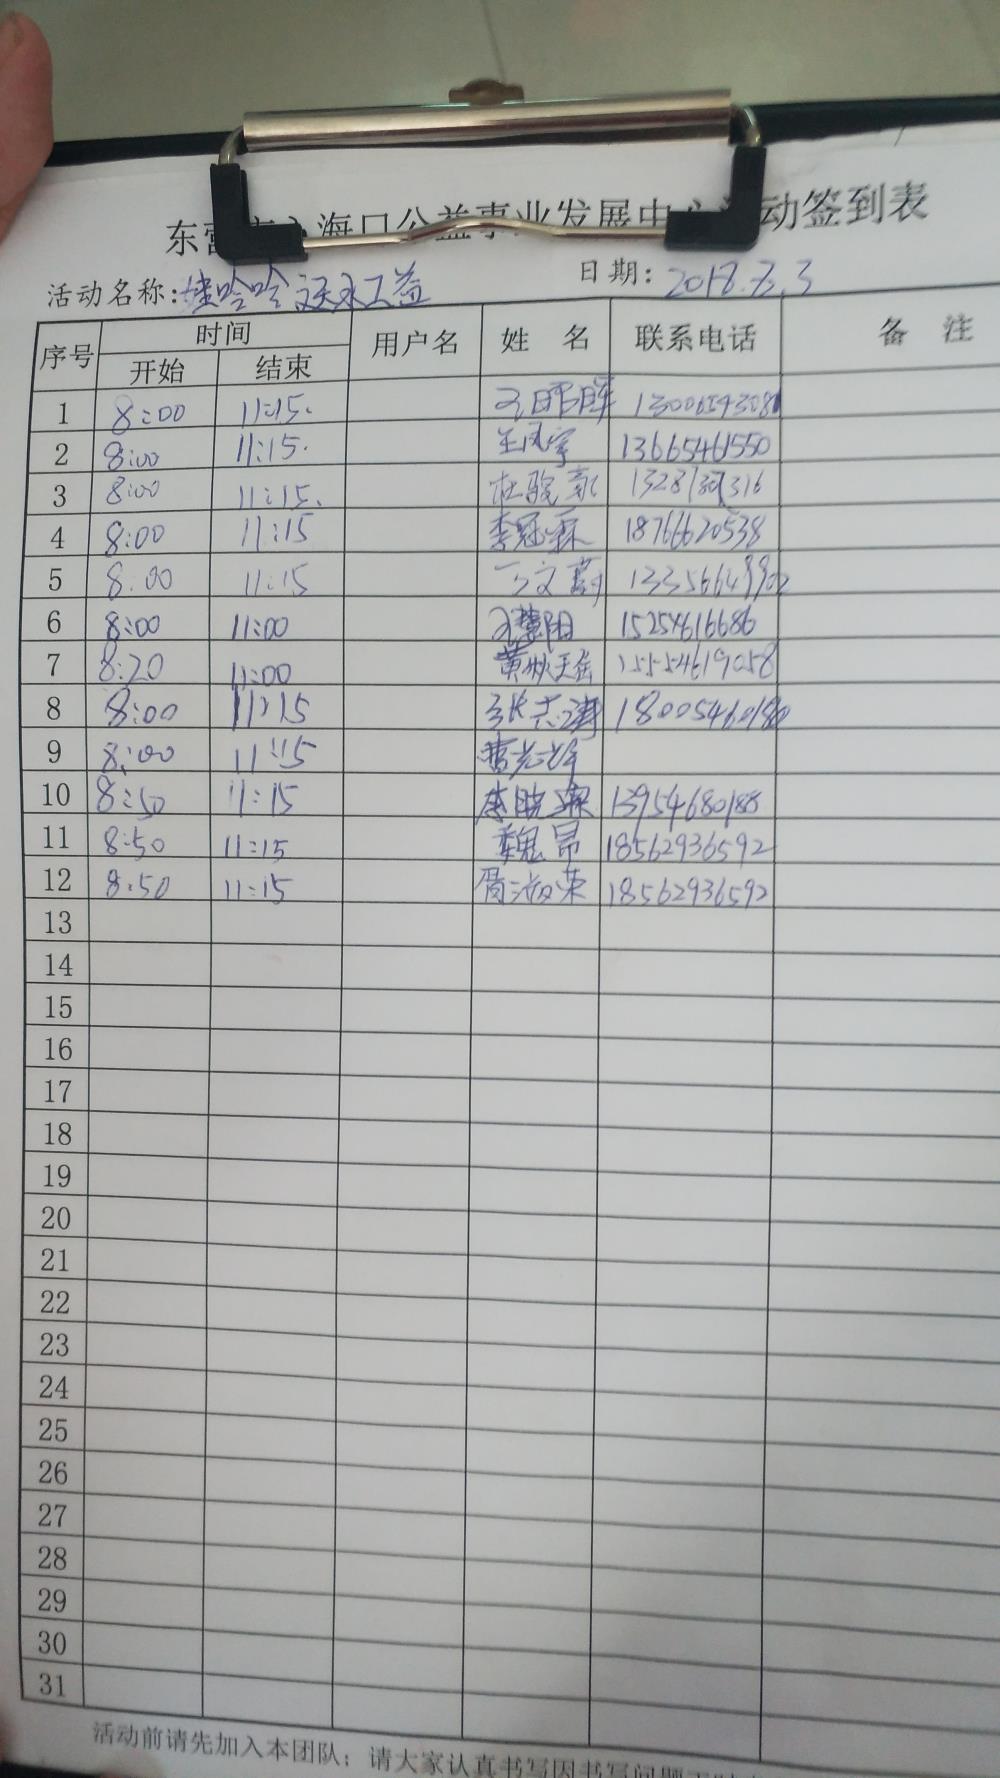 东营 海口公益事业发展中心 动签到表
活动名称:娃哈哈送水公益 日期: 2018.3.3
序号 时间 用户名 姓 名 联系电话 备 注
开始 结束
1 8:00 11:15. 13006543081
2 8:00 11:15. 王风宇 13665461550
3 8:00 11:15. 杜骏 1328 316
4 8:00 11:15 李冠霖 18766620538
5 8:00 11:15 文蔚 13356649902
6 8:00 11:00 慧阳 15254616686
7 8:20 11:00 黄 15554619058
8 8:00 11:15 张志涛 18005460180
9 8:00 11:15 曹光
10 8:50 11:15 李晓 13954680188
11 8:50 11:15 魏昂 18562936592
12 8:50 11:15 周淑荣 18562936592
13
14
15
16
17
18
19
20
21
22
23
24
25
26
27
28
29
30
31
活动前请先加入本团队；请大家认真书写因书写问题